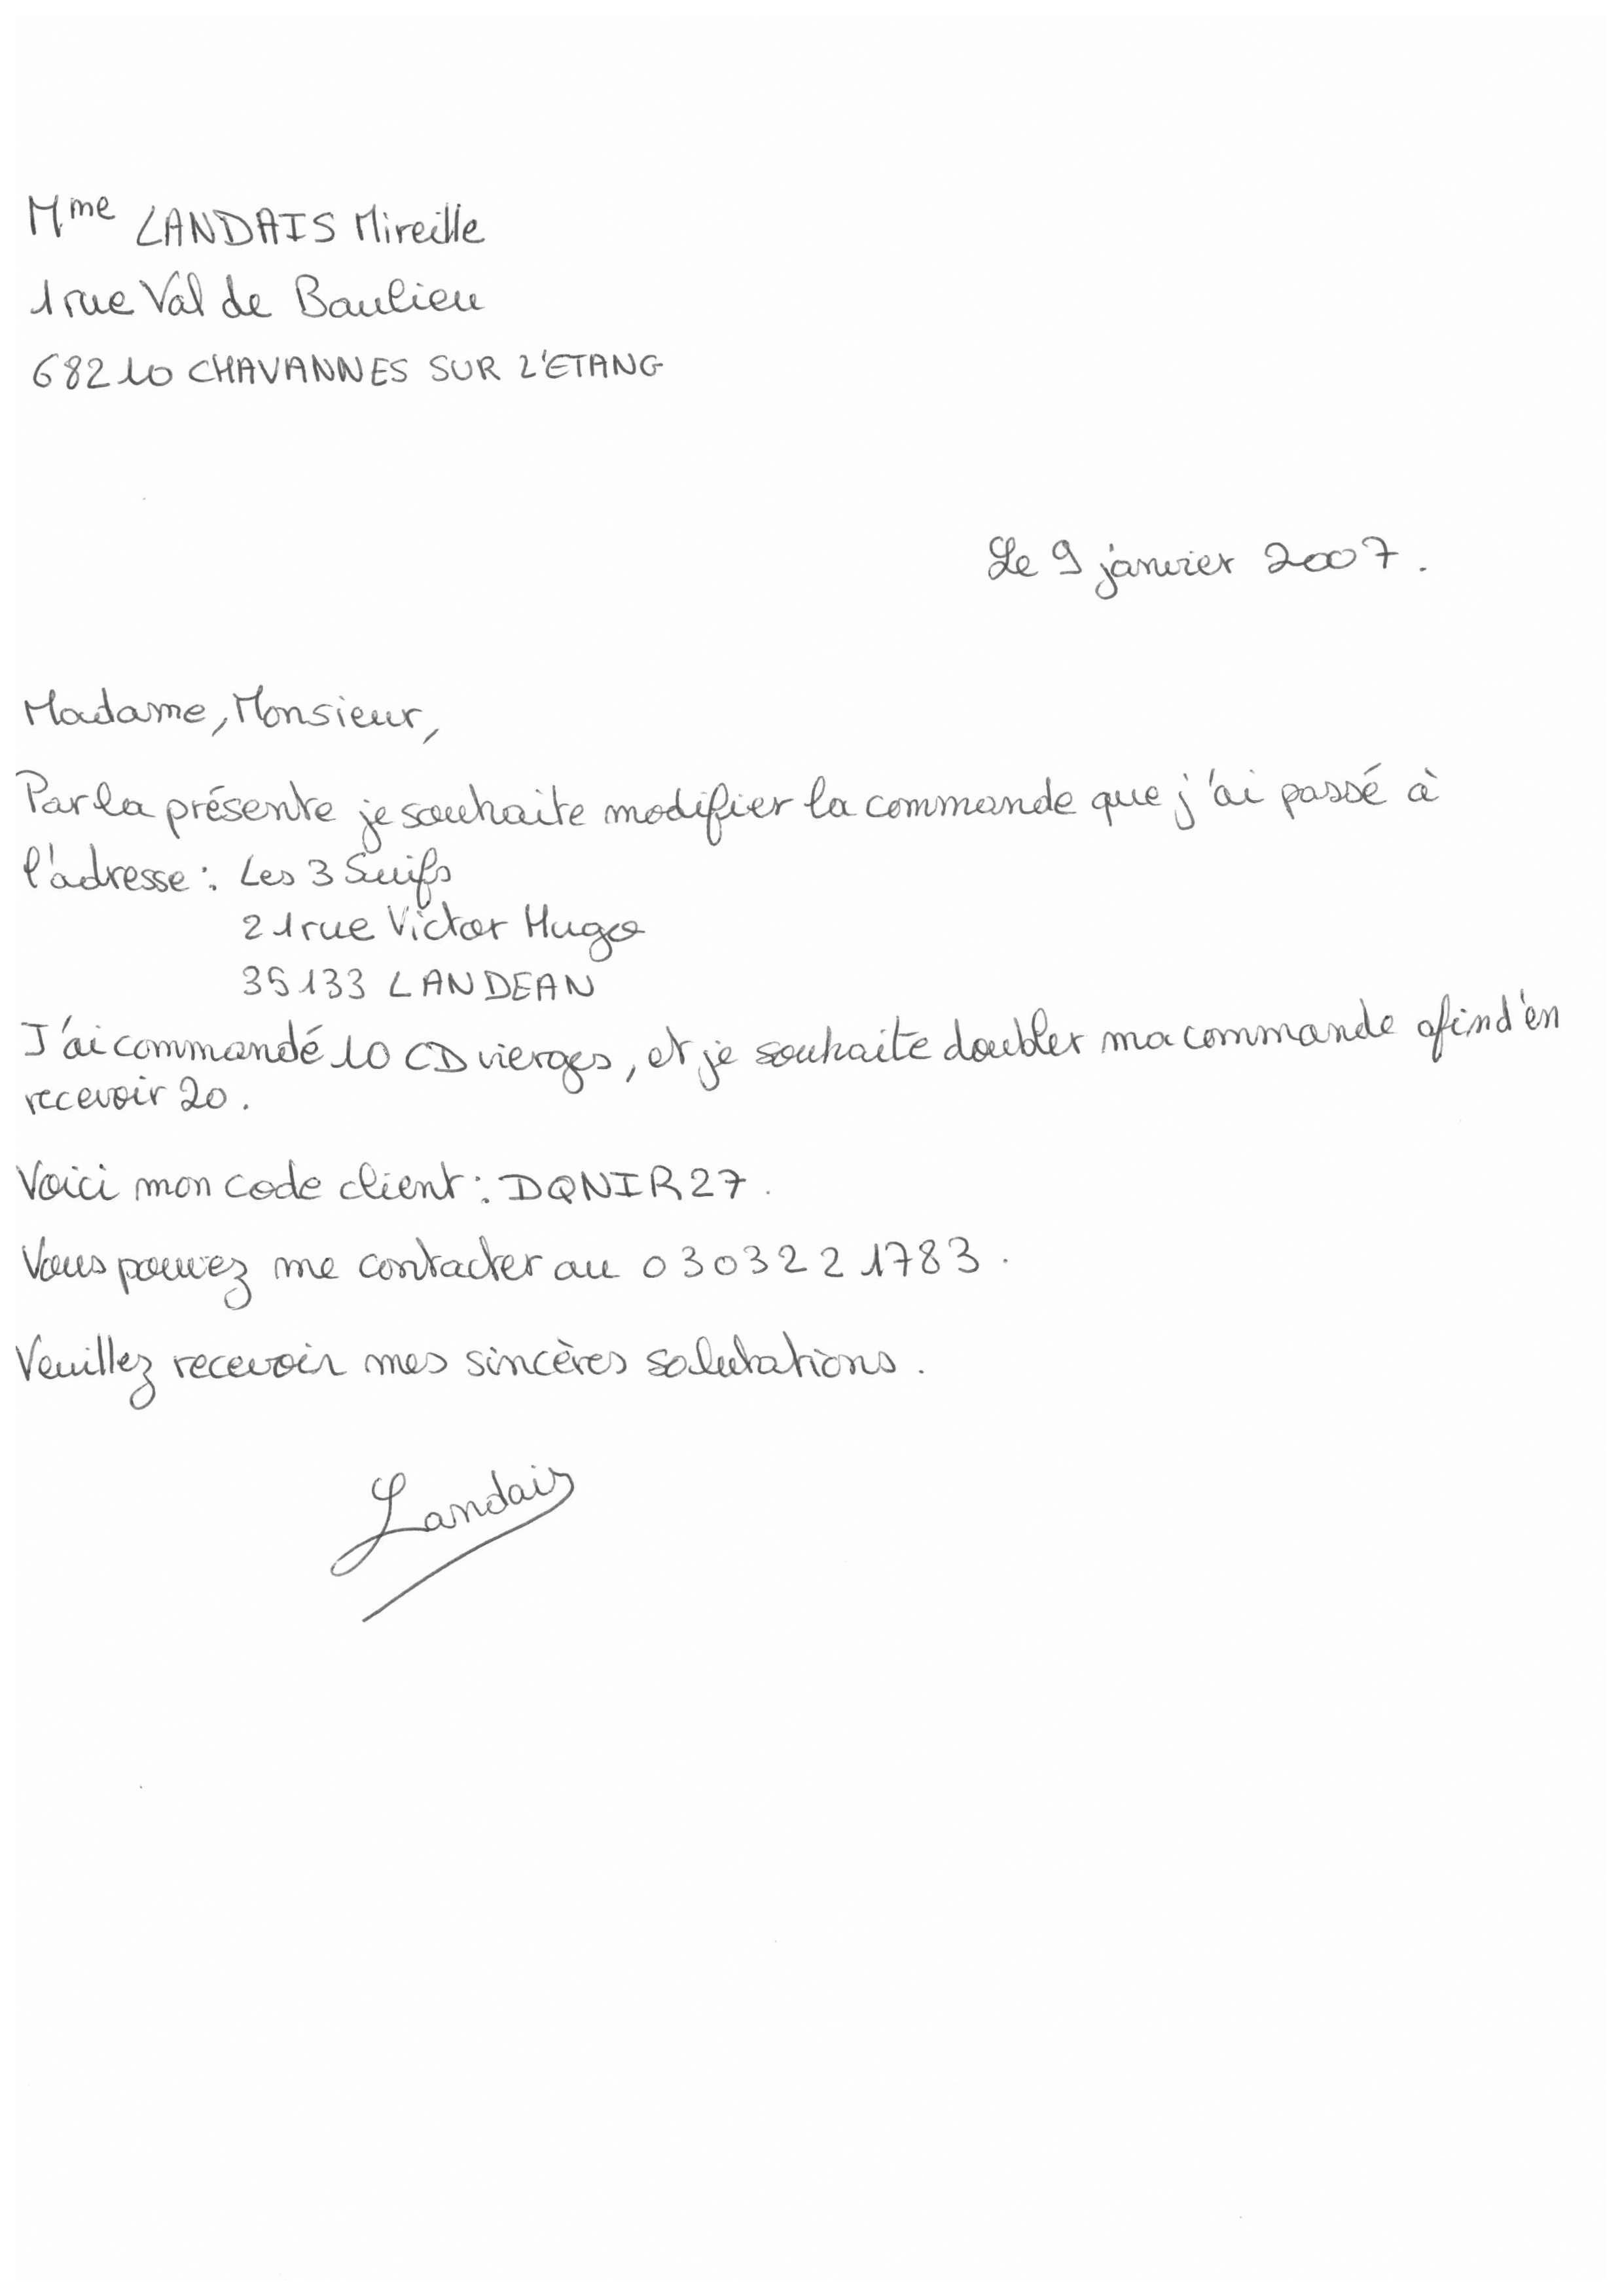 Mme LANDAIS Mireille
1 rue Val de Baulieu
68210 CHAVANNES SUR L'ETANG
Le 9 janvier 2007.
Madame, Monsieur,
Par la présente je souhaite modifier la commande que j'ai passé à
l'adresse : Les 3 Suifs
21 rue Victor Hugo
35133 LANDEAN
J'ai commandé 10 CD vierges, et je souhaite doubler ma commande afin d'en
recevoir 20.
Voici mon code client : DQNIR27.
Vous pouvez me contacter au 0303221783.
Veuillez recevoir mes sincères salutations.
Landais